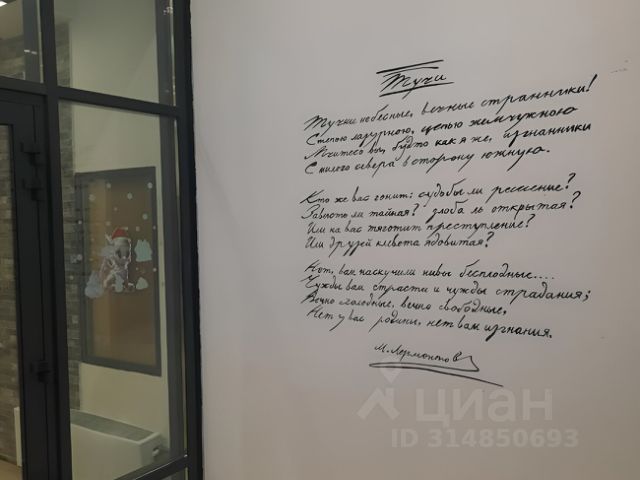 Тучи
Тучки небесные, вечные странники!
Степью лазурною, цепью жемчужною
Мчитесь вы, будто как я же, изгнанники
С милого севера в сторону южную.
Кто же вас гонит: судьбы ли решение?
Зависть ли тайная? злоба ль открытая?
Или на вас тяготит преступление?
Или друзей клевета ядовитая?
Нет, вам наскучили нивы бесплодные....
Чужды вам страсти и чужды страдания;
Вечно холодные, вечно свободные,
Нет у вас родины, нет вам изгнания.
М. Лермонтов
циан
ID 314850693